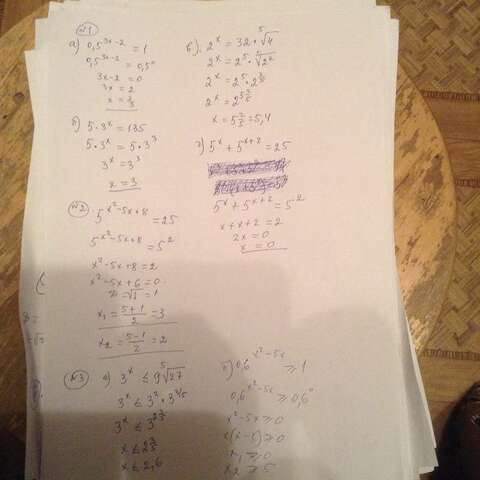 №1
а) 0,5^(3x-2) = 1
0,5^(3x-2) = 0,5^0
3x-2 = 0
3x = 2
x = 2/3
б) 5·3^x = 135
5·3^x = 5·3^3
3^x = 3^3
x = 3
в) 2^x = 32·⁵√4
2^x = 2^5·⁵√2^2
2^x = 2^5·2^(2/5)
2^x = 2^(5 2/5)
x = 5 2/5 = 5,4
г) 5^x + 5^(x+2) = 25
5^x + 5^(x+2) = 5^2
x + x+2 = 2
2x = 0
x = 0
№2
5^(x²-5x+8) = 25
5^(x²-5x+8) = 5^2
x²-5x+8 = 2
x²-5x+6 = 0
D = √1 = 1
x₁ = (5+1)/2 = 3
x₂ = (5-1)/2 = 2
№3
а) 3^x ≤ 9 ⁵√27
3^x ≤ 3^2·3^(3/5)
3^x ≤ 3^(2 3/5)
x ≤ 2 3/5
x ≤ 2,6
б) 0,6^(x²-5x) ≥ 1
0,6^(x²-5x) ≥ 0,6^0
x²-5x ≥ 0
x(x-5) ≥ 0
x₁ ≥ 0
x₂ ≥ 5